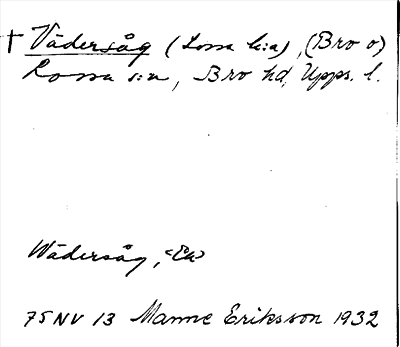 † Vädersåg (Lossa k:a), (Bro o)
Lossa s:n, Bro hd, Upps. l.
Wädersåg, <En>
75 NV 13 Manne Eriksson 1932